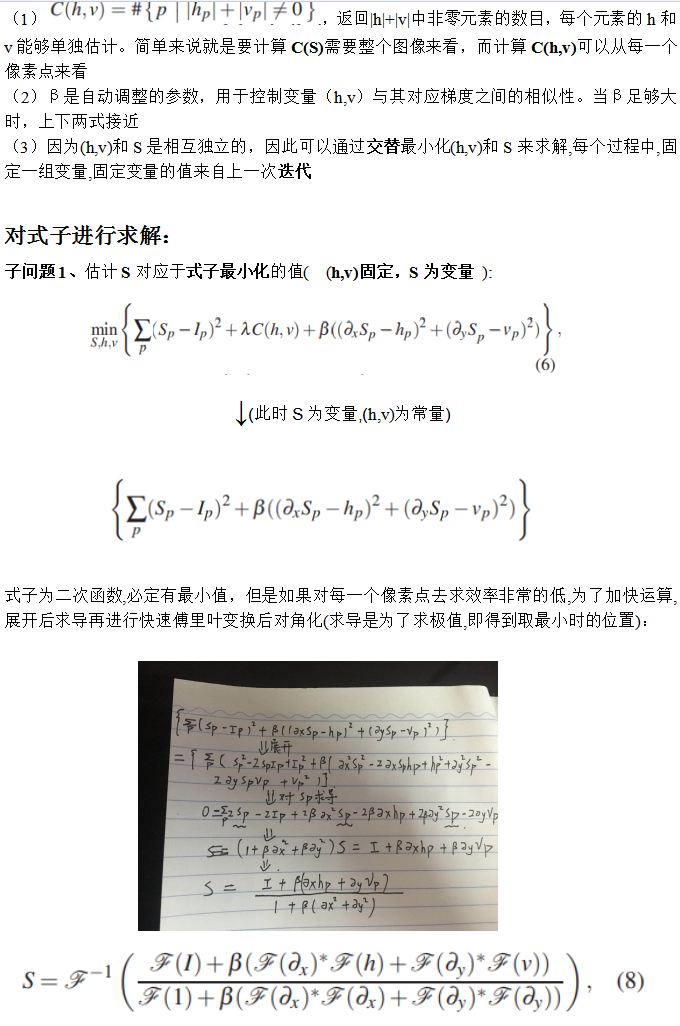 （1） C(h,v) = #{p | |h_p|+|v_p| ≠ 0}，返回|h|+|v|中非零元素的数目，每个元素的 h 和
v 能够单独估计。简单来说就是要计算 C(S)需要整个图像来看，而计算 C(h,v)可以从每一个
像素点来看
（2）β是自动调整的参数，用于控制变量（h,v）与其对应梯度之间的相似性。当β足够大
时，上下两式接近
（3）因为(h,v)和 S 是相互独立的，因此可以通过交替最小化(h,v)和 S 来求解,每个过程中,固
定一组变量,固定变量的值来自上一次迭代
对式子进行求解：
子问题 1、估计 S 对应于式子最小化的值( (h,v)固定，S 为变量 ):
min_{S,h,v} {∑_p (S_p − I_p)² + λC(h,v) + β((∂_xS_p − h_p)² + (∂_yS_p − v_p)²)},
(6)
↓(此时 S 为变量,(h,v)为常量)
{∑_p (S_p − I_p)² + β((∂_xS_p − h_p)² + (∂_yS_p − v_p)²)}
式子为二次函数,必定有最小值，但是如果对每一个像素点去求效率非常的低,为了加快运算,
展开后求导再进行快速傅里叶变换后对角化(求导是为了求极值,即得到取最小时的位置)：
{∑_p (Sp-Ip)² + β((∂xSp-hp)² + (∂ySp-Vp)²)}
⇓展开
= {∑_p (Sp²-2SpIp+Ip²+β(∂x²Sp²-2∂xSphp+hp²+∂y²Sp²-
2∂ySpVp+Vp²)}
⇓对Sp求导
0=∑_p 2Sp-2Ip+2β∂x²Sp-2β∂xhp+2β∂y²Sp-2∂yVp
⇓
(1+β∂x²+β∂y²)S = I+β∂xhp+β∂yVp
⇓.
S = I+β(∂xhp+∂yVp) / 1+β(∂x²+∂y²)
S = ℱ⁻¹( (ℱ(I)+β(ℱ(∂_x)*ℱ(h)+ℱ(∂_y)*ℱ(v))) / (ℱ(1)+β(ℱ(∂_x)*ℱ(∂_x)+ℱ(∂_y)*ℱ(∂_y))) ), (8)